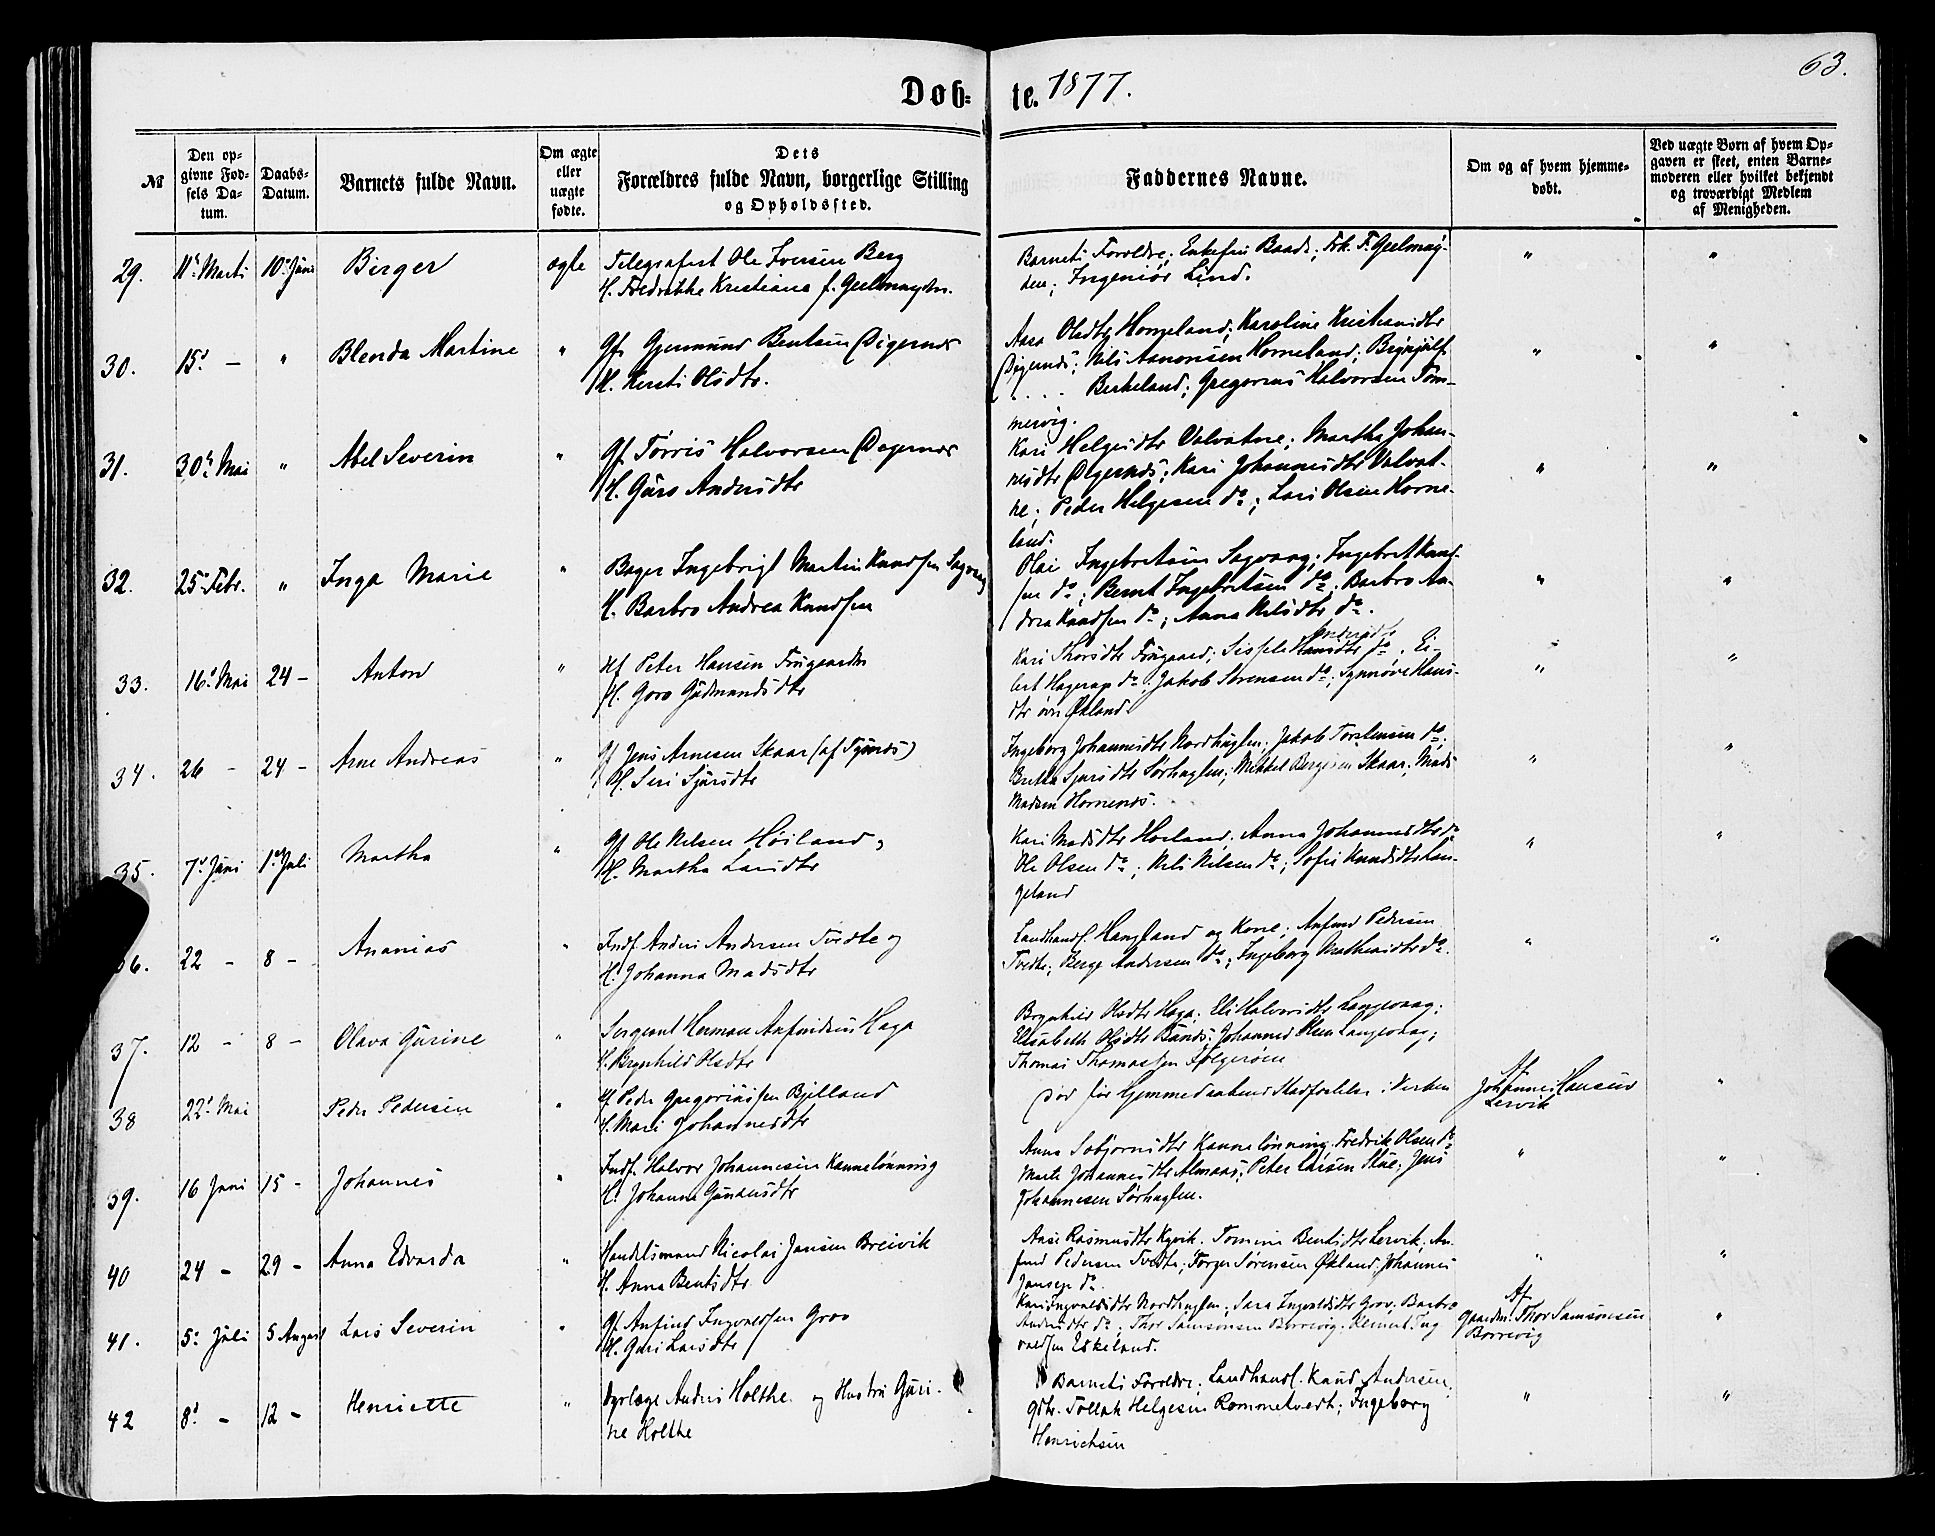 63.
Døb- te. 1877.
№
Den op-
givne Fød-
sels Da-
tum.
Daabs-
Datum.
Barnets fulde Navn.
Om ægte
eller
uægte
fødte.
Dets
Forældres fulde Navn, borgerlige Stilling
og Opholdssted.
Faddernes Navne.
Om og af hvem hjemme-
døbt.
Ved uægte Børn af hvem Op-
gaven er skeet, enten Barne-
moderen eller hvilket bekjendt
og troværdigt Medlem
af Menigheden.
29. 11te Marti 10de Juni Birger ægte Telegrafist Ole Iversen Berg
H. Fredrikke Kristiane f. Geelmuyden.
Barnets Forældre; Enkefru Baade; Frk. F. Geelmuy-
den; Ingeniør Lind. " "
30. 15d - " Blenda Martine " Gf. Gjermund Bentsen Digernes
H. Kersti Olsdtr.
Aasa Olsdtr Horneland; Karoline Kristensdtr
Digernes; Nils Aanonsen Horneland; Brynjulf
.... Berkeland; Gregorius Halvorsen Tom-
mervig. " "
31. 30te Mai " Abel Severin " Gf. Torris Halvorsen Digernes
H. Guro Andersdtr
Kari Helgesdtr Valvatne; Martha Johan-
nesdtr Digernes; Kari Johannesdtr Valvat-
ne; Peder Helgesen do; Lars Olsen Horne-
land. " "
32. 25de Febr. " Inga Marie " Bager Ingebrigt Martin Knudsen Sagvaag
H. Barbro Andrea Knudsen
Olai Ingebretsen Sagvaag; Ingebret Knud-
sen do; Bernt Ingebretsen do; Barbro An-
drea Knudsen do; Anna Nilsdtr do. " "
33. 16d Mai 24 - Anton " Hf Peter Hansen Frugaarden
H. Goro Gudmundsdtr
Kari Thorsdtr Frugaard; Sissela Andersdtr do; Ei-
lert Hagerup do; Jakob Sørensen do; Synnøve Hans-
dtr øvre Økland. " "
34. 26 - 24 - Arne Andreas " Gf Jens Arnesen Skaar (af Tysnes)
H. Seri Sjursdtr
Ingeborg Johannesdtr Nordhuglen; Jakob Torstensen do.
Brita Sjursdtr Sørhuglen; Mikkel Bergesen Skaar; Mads
Madsen Hornenes. " "
35. 7d Juni 1ste Juli Martha " Gf Ole Nilsen Høiland,
H. Martha Larsdtr
Kari Madsdtr Hovland; Anna Johannesdtr do
Ole Olsen do; Nils Nilsen do; Sofie Knudsdtr Lan-
geland " "
36. 22 - 8 - Ananias " Indf. Anders Andersen Tvedte og
H. Johanna Madsdtr
Landhandl. Haugland og Kone; Anfind Pedersen
Tvedte; Berge Andersen do; Ingeborg Mathiasdtr do. " "
37. 12 - 8 - Olava Gurine " Sergeant Herman Anfindsen Haga
H. Brynhild Olsdtr
Brynhild Olsdtr Haga; Eli Halvorsdtr Langevaag;
Elisabeth Olsdtr; Johannes Olsen Langevaag;
Thomas Thomassen Folgerøen
38 22d Mai Peder Pedersen " Hf Peder Gregoriussen Bjelland
H. Mari Johannesdtr
Død før Hjemmedaabens Stadfæstelse i Kirken
Af
Johannes Hansen
Lervik "
39. 16 Juni 15 - Johannes " Indf. Halvor Johannesen Kannelønning
H. Johanna
Anna Kannelønning; Fredrik Olsen do.
Marte Johannesdtr Almaas; Peter Larsen; Jens
Johannesen Sørhuglen. " "
40 24 - 29 - Anna Edvarda " Handelsmand Nicolai Jansen Breivik
H. Anna Bentsdtr.
Aase Rasmusdtr Kyvik. Tomine Bentsdtr Lervik; An-
find Pedersen Tvedte; Torger Sørensen Økland; Johannes
Jansen do. " "
41. 5d Juli 5 August Lars Severin " Gf Anfind Ingvaldsen Grov
H. Guri Larsdtr
Kari Ingvaldsdtr Nordhuglen; Sara Ingvaldsdtr Grov; Barbro
Andersdtr do; Thor Samsonsen Borrevig; Reinert Ing-
valdsen Eskeland.
Af
Gaardm. Thor Samsonsen
Borrevig "
42 8d - 12 - Henriette " Dyrlæge Anders Holthe og Hustru Guri-
ne Holthe
Barnets Forældre; Landhandl. Knud Andersen;
Gbr. Tollak Helgesen Rommetvedt; Ingeborg
Henrichsen " "